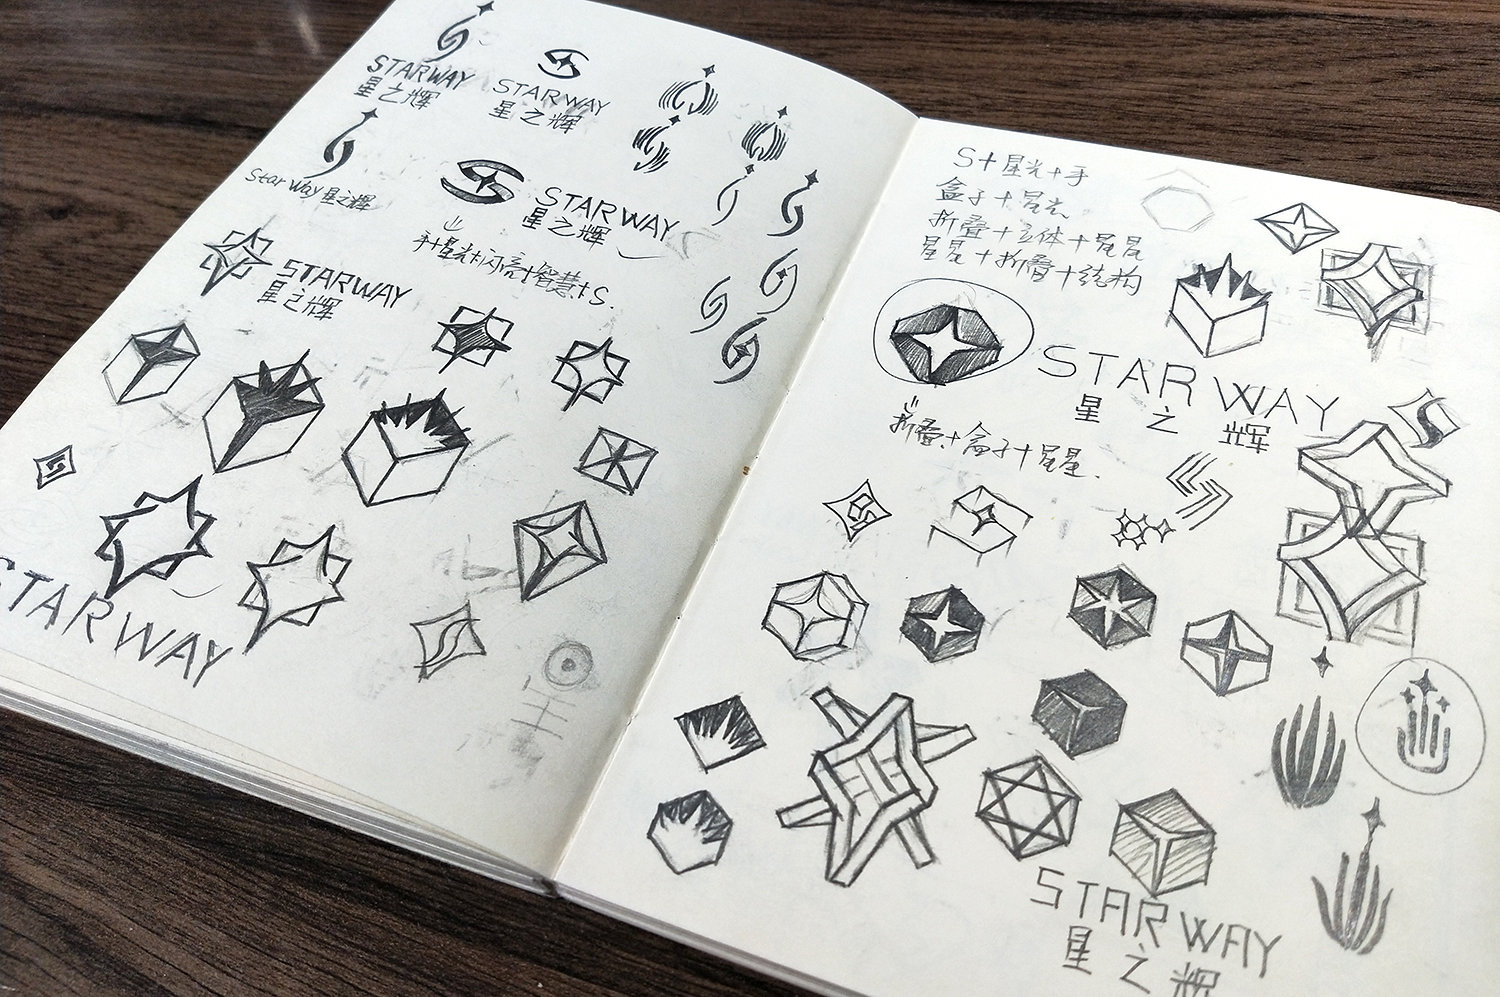 STARWAY
星之辉
STARWAY
星之辉
Star Way 星之辉
STARWAY
星之辉
手+星光+闪亮+智慧+S.
STARWAY
星之辉
STARWAY
S+星光+手
盒子+星光
折叠+立体+星星
星星+折叠+结构
STARWAY
星之辉
折叠+盒子+星星.
STARWAY
星之辉